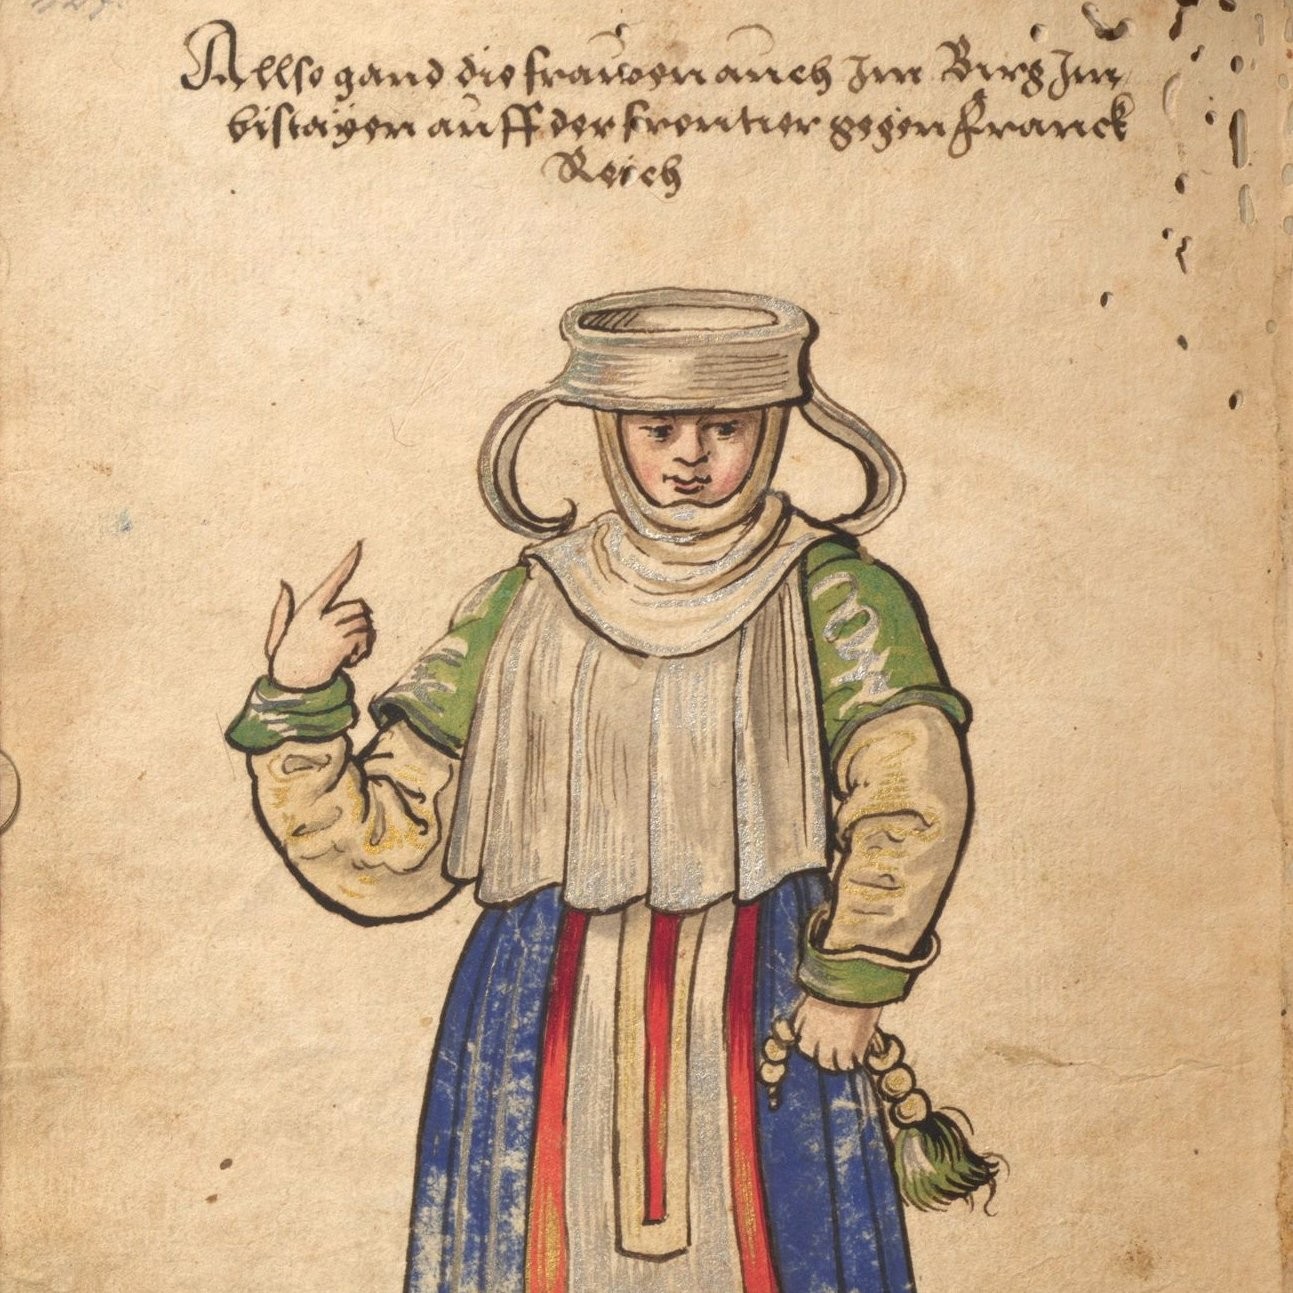 Allso gand die frawen auch Im Birg Im
biscayen auff der frontier gegen Franck
Reich